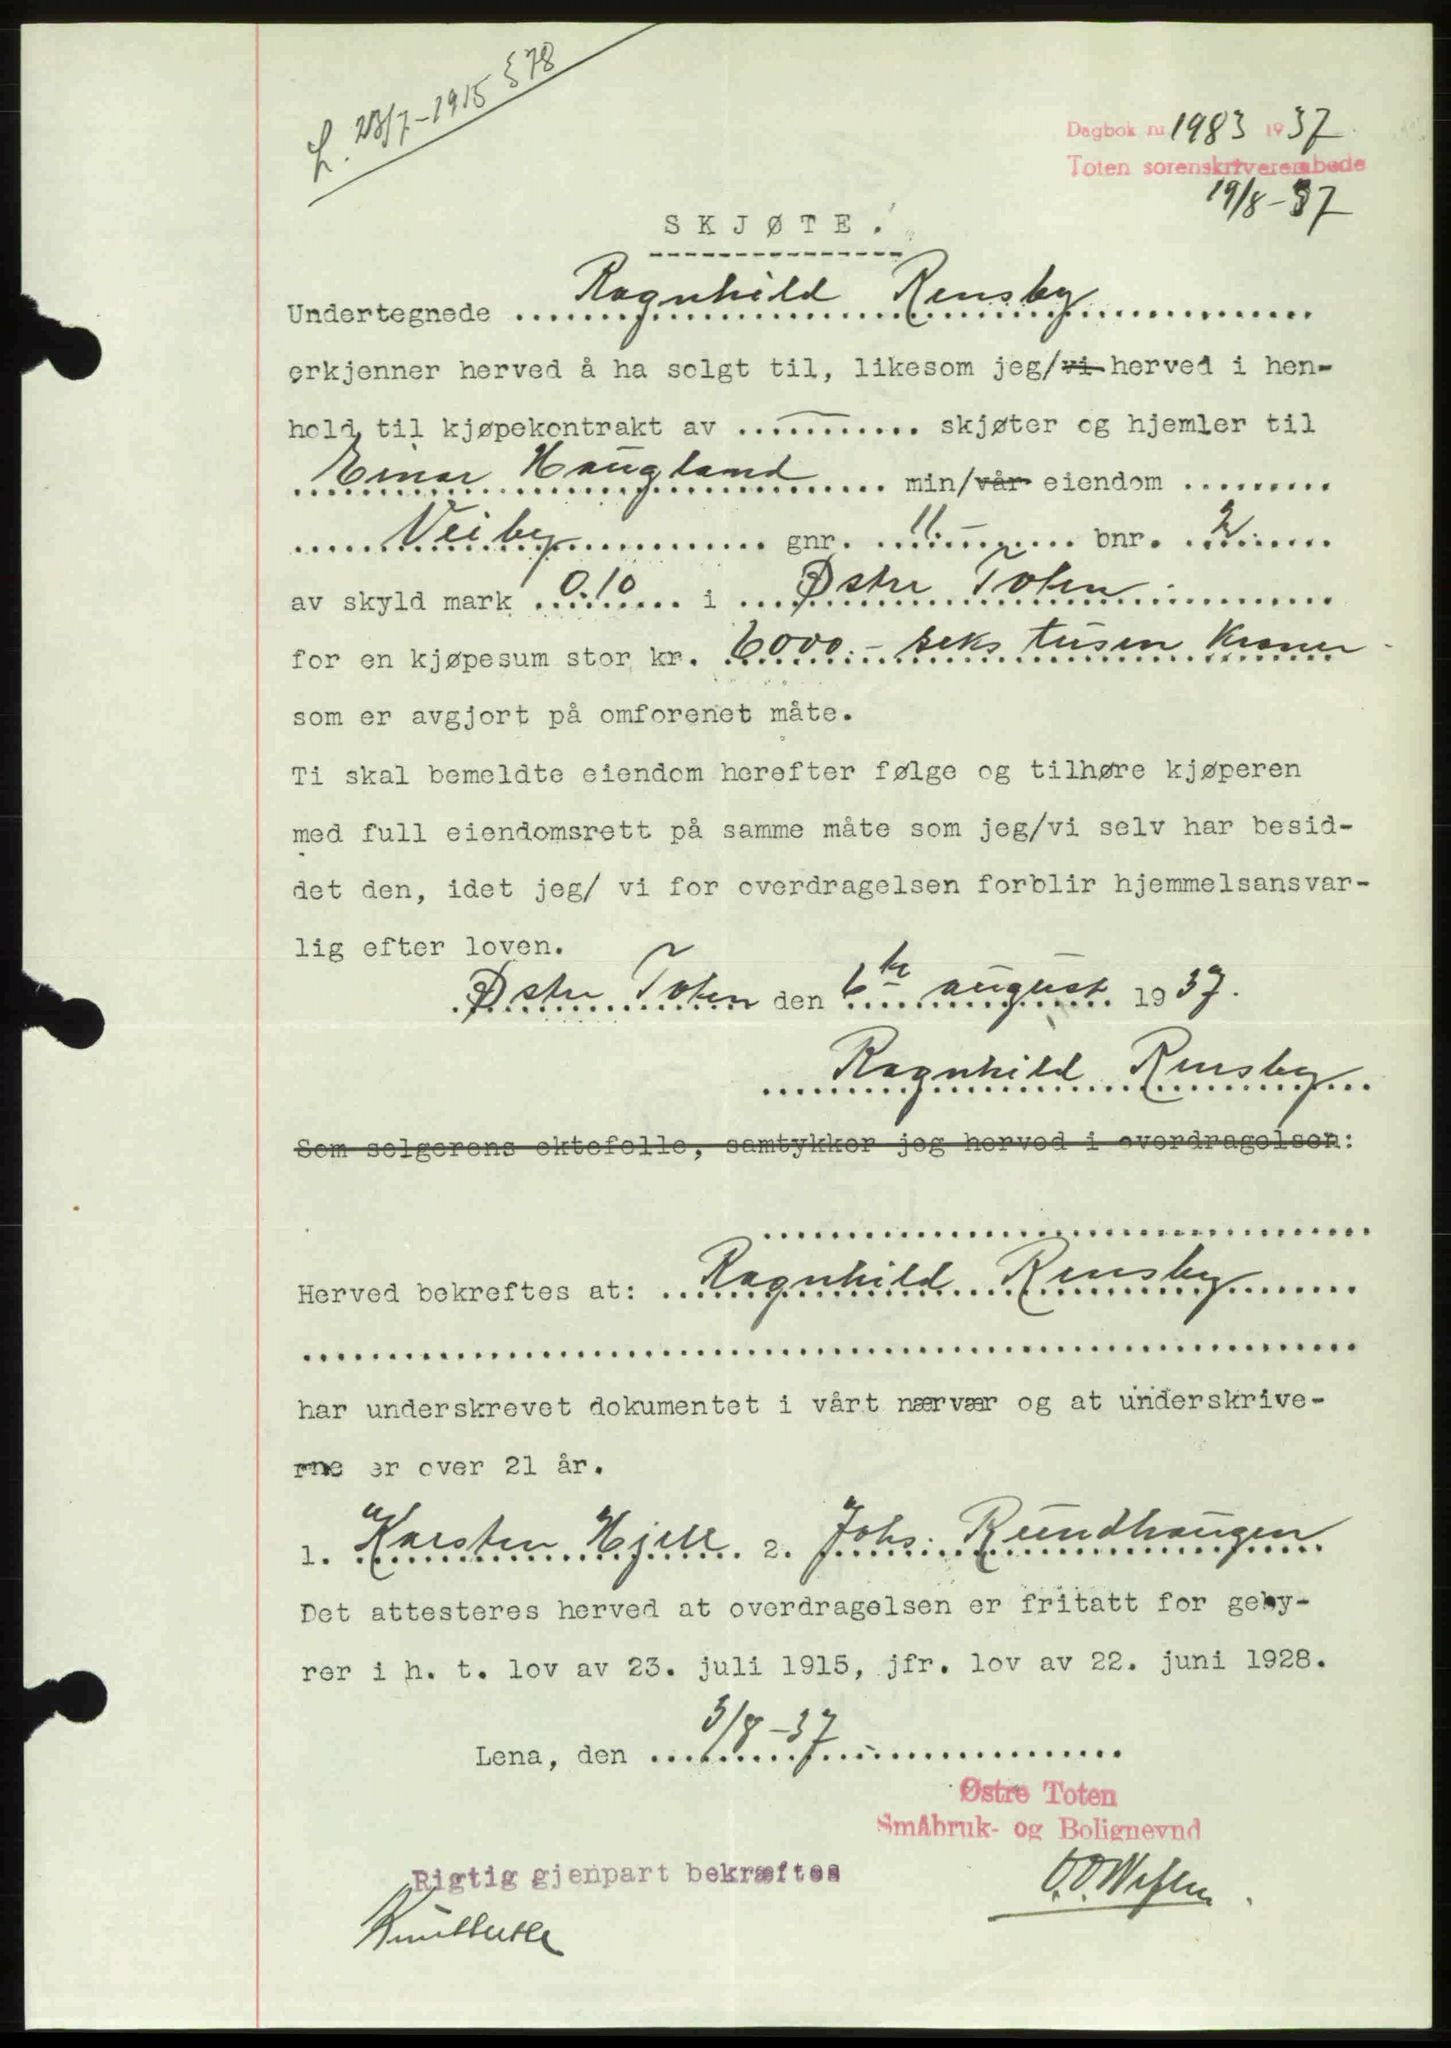 L. 23/7-1915 § 78
Dagbok nr 1983 1937
Toten sorenskriverembede
19/8-37
SKJØTE.
Undertegnede Ragnhild Rensby
erkjenner herved å ha solgt til, likesom jeg/vi herved i hen-
hold til kjøpekontrakt av ............ skjøter og hjemler til
Einar Haugland min/vår eiendom .........
Veiby gnr. 11 bnr. 2
av skyld mark 0.10 i Østre Toten
for en kjøpesum stor kr. 6000.- seks tusen Kroner
som er avgjort på omforenet måte.
Ti skal bemeldte eiendom herefter følge og tilhøre kjøperen
med full eiendomsrett på samme måte som jeg/vi selv har besid-
det den, idet jeg/ vi for overdragelsen forblir hjemmelsansvar-
lig efter loven.
Østre Toten den 6te august 1937.
Ragnhild Rensby
Som selgerens ektefelle, samtykker jeg herved i overdragelsen:
Herved bekreftes at: Ragnhild Rensby
har underskrevet dokumentet i vårt nærvær og at underskrive-
rne er over 21 år.
1. Karsten Hjell 2. Johs. Rundhaugen
Det attesteres herved at overdragelsen er fritatt for geby-
rer i h. t. lov av 23. juli 1915, jfr. lov av 22. juni 1928.
Lena, den 3/8-37
Østre Toten
Småbruk- og Bolignevnd
Rigtig gjenpart bekræftes